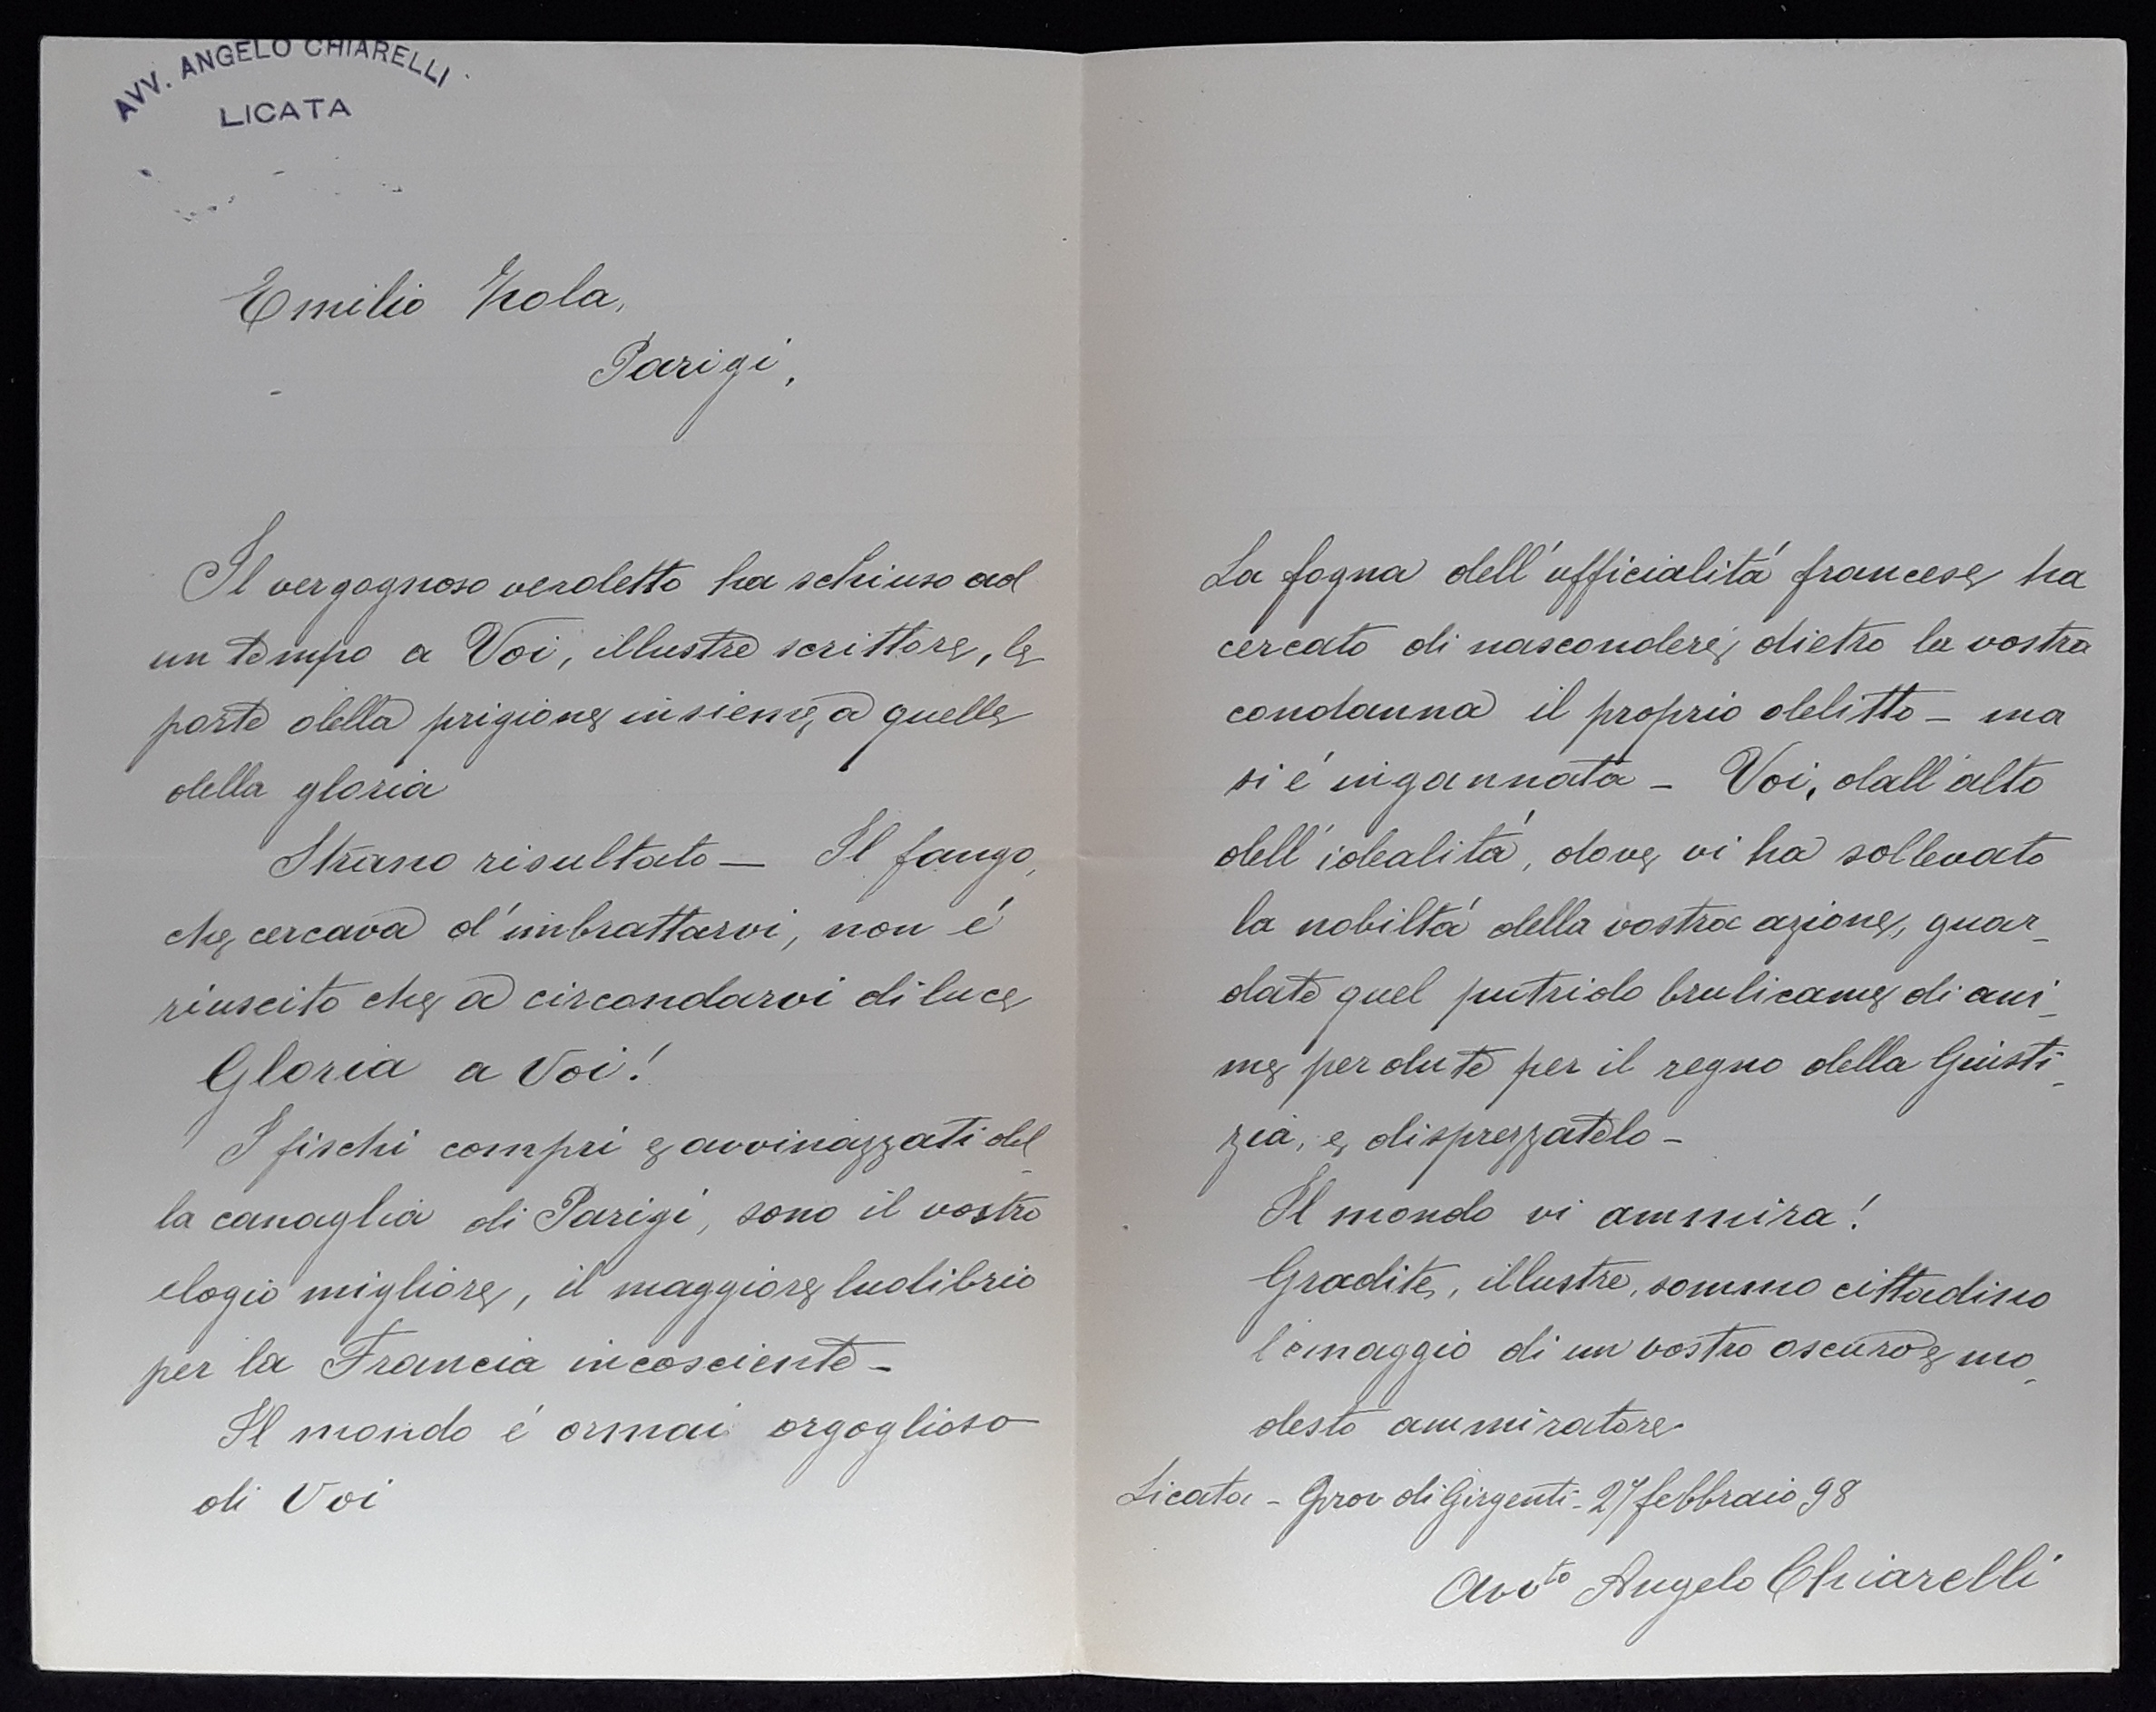 AVV. ANGELO CHIARELLI
LICATA
Emilio Zola,
Parigi,
Il vergognoso verdetto ha schiuso ad
un tempo a Voi, illustre scrittore, le
porte della prigione insieme a quelle
della gloria
Strano risultato — Il fango,
che cercava d'imbrattarvi, non é
riuscito che a circondarvi di luce
Gloria a Voi!
I fischi compri e avvinazzati del-
la canaglia di Parigi, sono il vostro
elogio migliore, il maggiore ludibrio
per la Francia incosciente —
Il mondo é ormai orgoglioso
di Voi
La fogna dell'ufficialitá francese ha
cercato di nascondere, dietro la vostra
condanna il proprio delitto — ma
si é ingannata — Voi, dall'alto
dell'idealitá, dove vi ha sollevato
la nobiltá della vostra azione, guar-
date quel putrido brulicame di ani-
me perdute per il regno della Giusti-
zia, e disprezzatelo —
Il mondo vi ammira!
Gradite, illustre, sommo cittadino
l'omaggio di un vostro oscuro e mo-
desto ammiratore
Licata — Prov di Girgenti — 27 febbraio 98
Avv.to Angelo Chiarelli